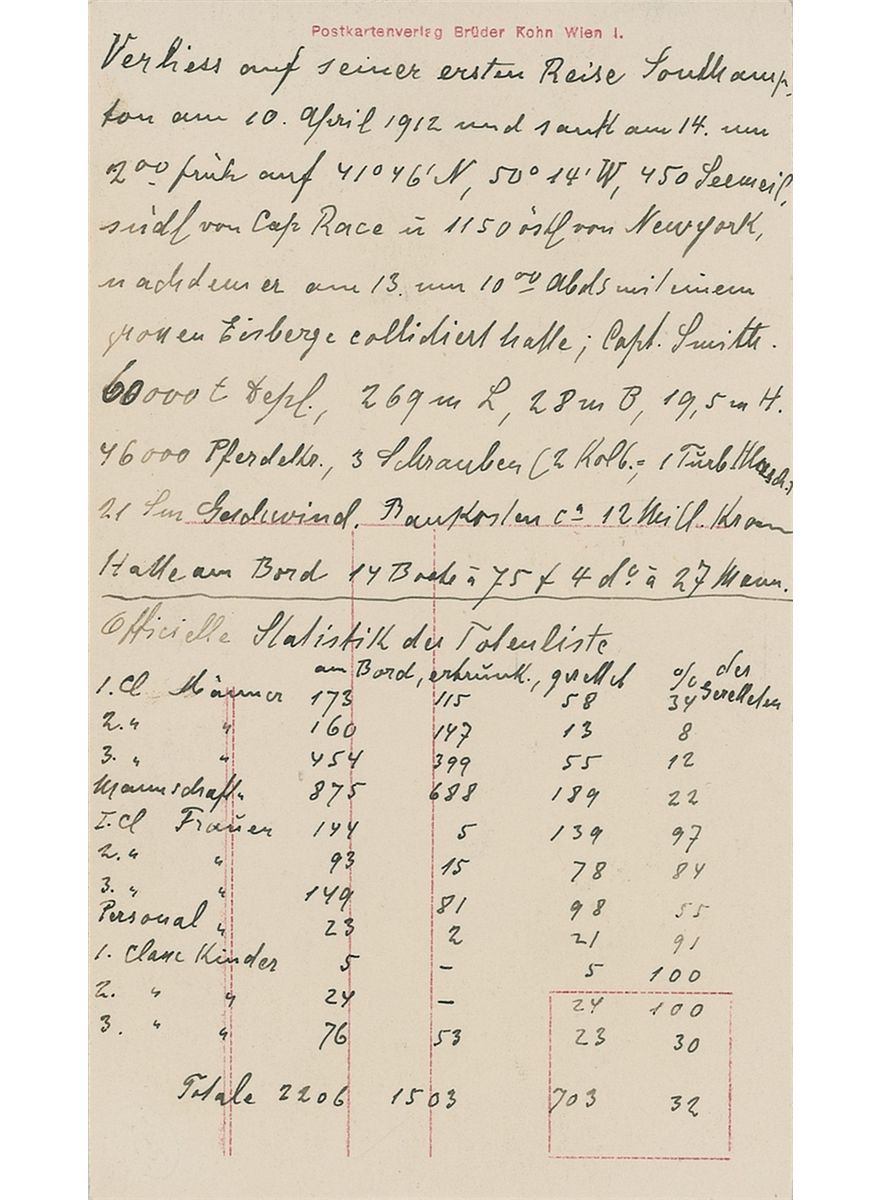 Postkartenverlag Brüder Kohn Wien I.
Verliess auf seiner ersten Reise Southamp-
ton am 10. April 1912 und sank am 14. um
2⁰⁰ früh auf 41° 46' N, 50° 14' W, 450 Seemeil,
südl von Cap Race u 1150 östl von Newyork,
nachdem er am 13. um 10⁰⁰ Abds mit einem
grossen Eisberge collidiert hatte; Capt. Smith.
60000 t Depl., 269 m L, 28 m B, 19,5 m H.
46000 Pferdekr., 3 Schrauben (2 Kolb.=, 1 Turb Masch.)
21 Sm Geschwind. Baukosten ca 12 Mill. Kronen
Hatte am Bord 14 Boote à 75 & 4 do. à 27 Mann.
Officielle Statistik der Totenliste
am Bord, ertrunk., gerettet % der Geretteten
1. Cl Männer 173 115 58 34
2. " " 160 147 13 8
3. " " 454 399 55 12
Mannschaft " 875 688 189 22
I. Cl Frauen 144 5 139 97
2. " " 93 15 78 84
3. " " 149 81 98 55
Personal " 23 2 21 91
1. Classe Kinder 5 - 5 100
2. " " 24 - 24 100
3. " " 76 53 23 30
Totale 2206 1503 703 32